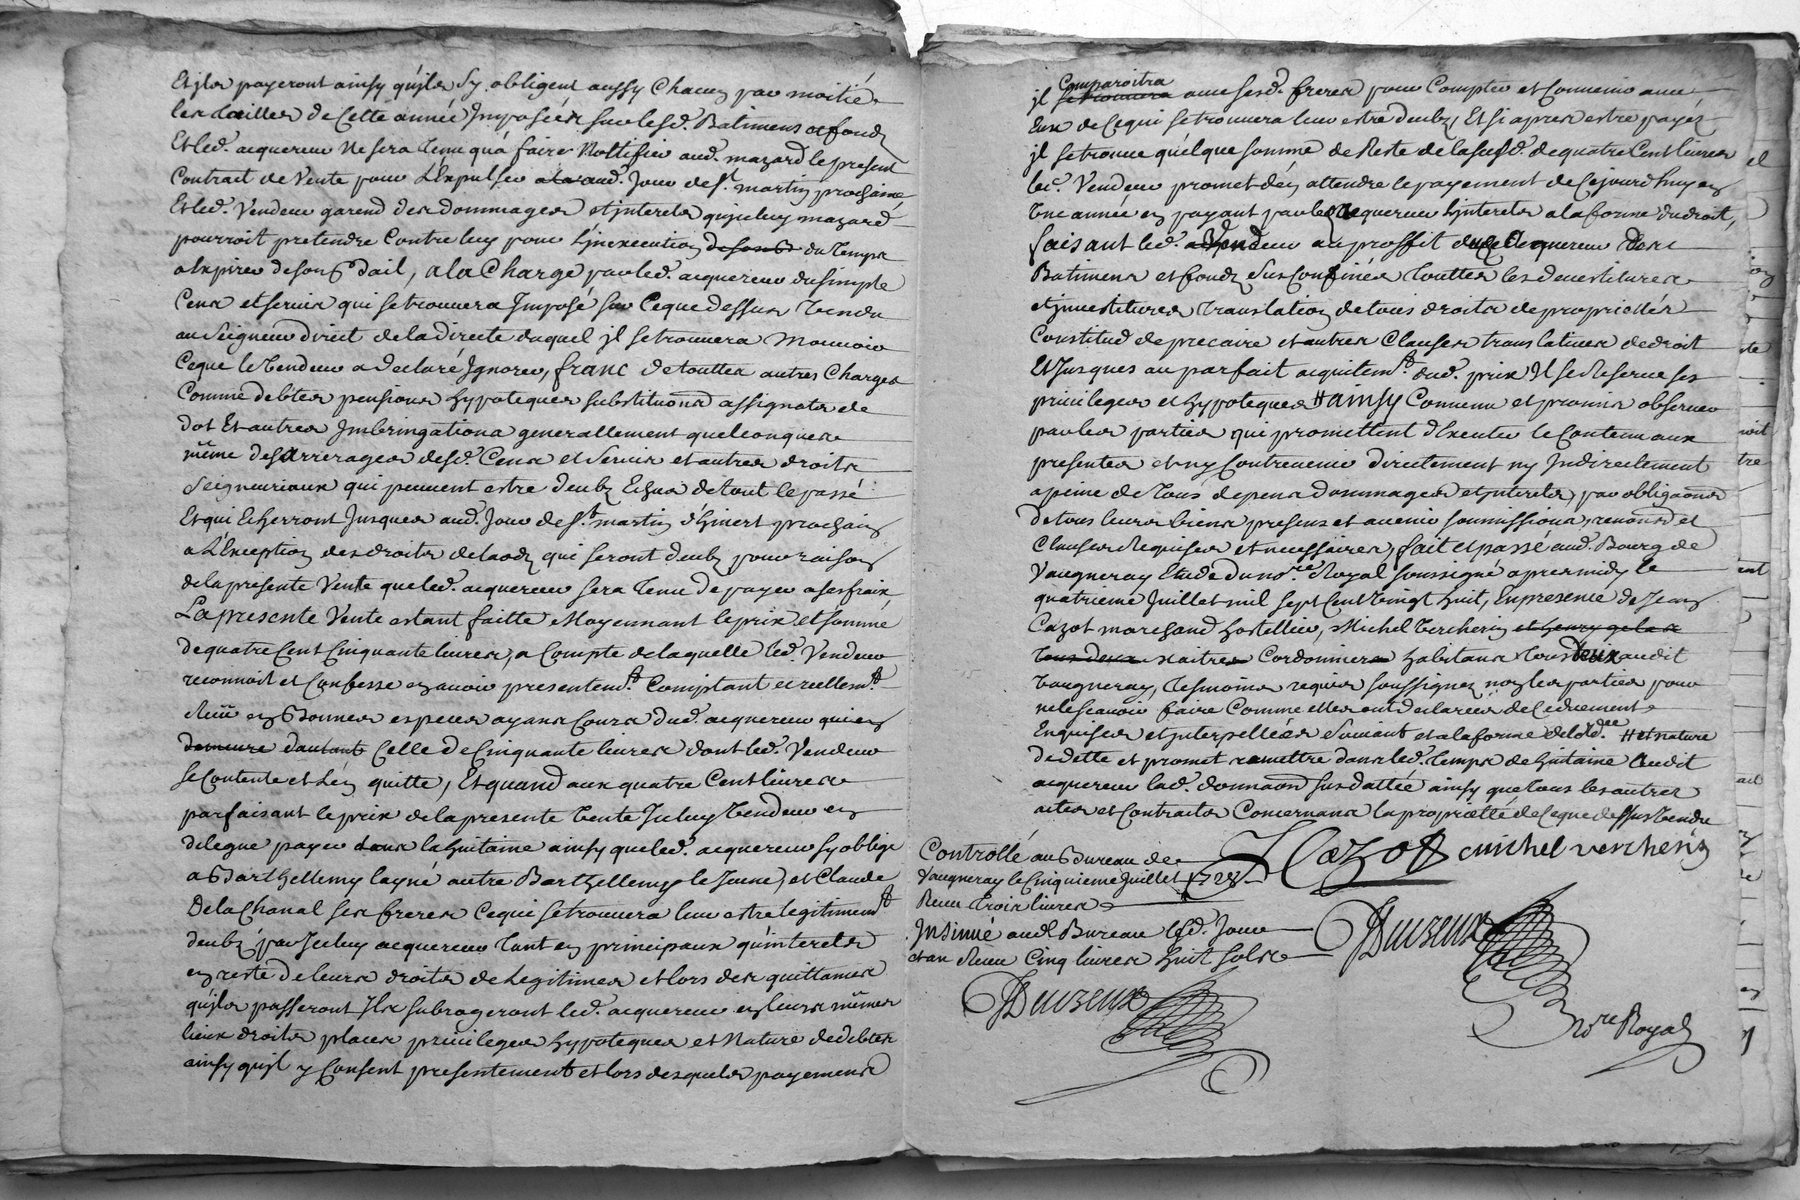 Et jls payeront ainsy qujls sy obligent aussy Chacun par moitié
les tailles de Cette année Jmposées sur lesd. Batimens et fonds
Et led. acquereur Ne sera tenu qu'a faire Nottiffier aud. mazard le present
Contract de Vente pour L'Expulser a la aud. Jour de st. martin prochain
Et led. Vendeur garend des dommages et jnterets qujceluy mazard
pourroit pretendre Contre luy pour L'jnexecution de son B du temps
a Expirer de son Bail, a la Charge par led. acquereur du simple
Cens et servis qui se trouvera Jmposé sur Ceque dessus Vendu
au seigneur direct de la directe duquel jl se trouvera Mouvoir
Ceque le Vendeur a declaré Jgnorer, franc de touttes autres Charges
Comme debtes pensions hypoteques substituons assignats de
dot Et autres Jmbringations generallement quelconques
même des arrerages desd. Cens et servis et autres droits
seigneuriaux qui peuvent estre deubz Echus de tout le passé
Et qui Echerront Jusques aud. Jour de st. martin d'hivert prochain
a L'Exception des droits de laods qui seront deubz pour raison
de la presente Vente que led. acquereur sera tenu de payer a ses frais
La presente Vente estant faitte Moyennant le prix et somme
de quatre Cent Cinquante livres, a Compte de laquelle led. Vendeur
reconnoit et Confesse en avoir presentemt. Comptant et reellemt.
Reçû en Bonnes especes ayans Cours dud. acquereur qui en
demeure d'autant Celle de Cinquante livres dont led. Vendeur
se Contente et L'en quitte, Et quand aux quatre Cent livres
parfaisant le prix de la presente Vente Jceluy Vendeur en
delegue payer dans la huitaine ainsy que led. acquereur sy oblige
a Barthellemy layné autre Barthellemy le Jeune, et Claude
Delachanal ses freres Cequi se trouvera leur estre legitimemt.
deubz par Jceluy acquereur tant en principaux qu'interets
en reste de leurs droits de Legitimes et lors des quittances
qujls passeront Jls subrogeront led. acquereur en leurs mêmes
lieux droits places privileges hypoteques et Nature de debtes
ainsy qujl y Consent presentement et lors desquels payemens
Comparoitra
jl se trouvera avec sesd. freres pour Compter et Convenir avec
Eux de Cequi se trouvera leur estre deubz, Et si apres estre payés
jl se trouve quelque somme de Reste de la susd. de quatre Cent livres
led. Vendeur promet d'en attendre le payement de Cejourd'huy en
Une année en payant par led. acquereur L'jnterets a la forme du droit,
faisant led. Vendeur au proffit dud. acquereur des
Batimens et fonds sus Confinés touttes les devestitures
et jnvestitures translation de tous droits de proprietés
Constitud. de precaire et autres Clauses translatives de droit
Et Jusques au parfait acquitemt. dud. prix Jl se Reserve ses
privileges et hypoteques # ainsy Convenu et promis observer
par les parties qui promettent d'Executer le Contenu aux
presentes et ny Contrevenir directement ny Jndirectement
a peine de tous depens dommages et jnterets, par obligaons
de tous leurs biens presens et avenir soumissions, renonons et
Clauses Requises et necessaires, fait et passé aud. Bourg de
Vaugneray Etude du nore. Royal soussigné apres midy le
quatrieme Juillet mil sept Cent Vingt huit, En presence de Jean
Cazot marchand hostellier, Michel Vercherin et henry gelas
tous deux maitres Cordonniers habitans tous deux audit
Vaugneray, tesmoins requis soussignez non les parties pour
ne le scavoir faire Comme elles ont declarées de Ce düement
Enquises et jnterpellées suivant et a la forme de lord.ce # et nature
de dette et promet remettre dans led. temps de huitaine audit
acquereur lad. donnaon sus dattée ainsy que tous les autres
actes et Contrats Concernans la proprietté de Ceque dessus Vendu
JCazot michel vercherin
Controllé au Bureau de
Vaugneray le Cinquieme Juillet 1728
Reçu trois livres
Jnsinué aud. Bureau lesd. Jour
et an Reçu Cinq livres huit sols
JDeuzeux
JDeuzeux
Nore Royal